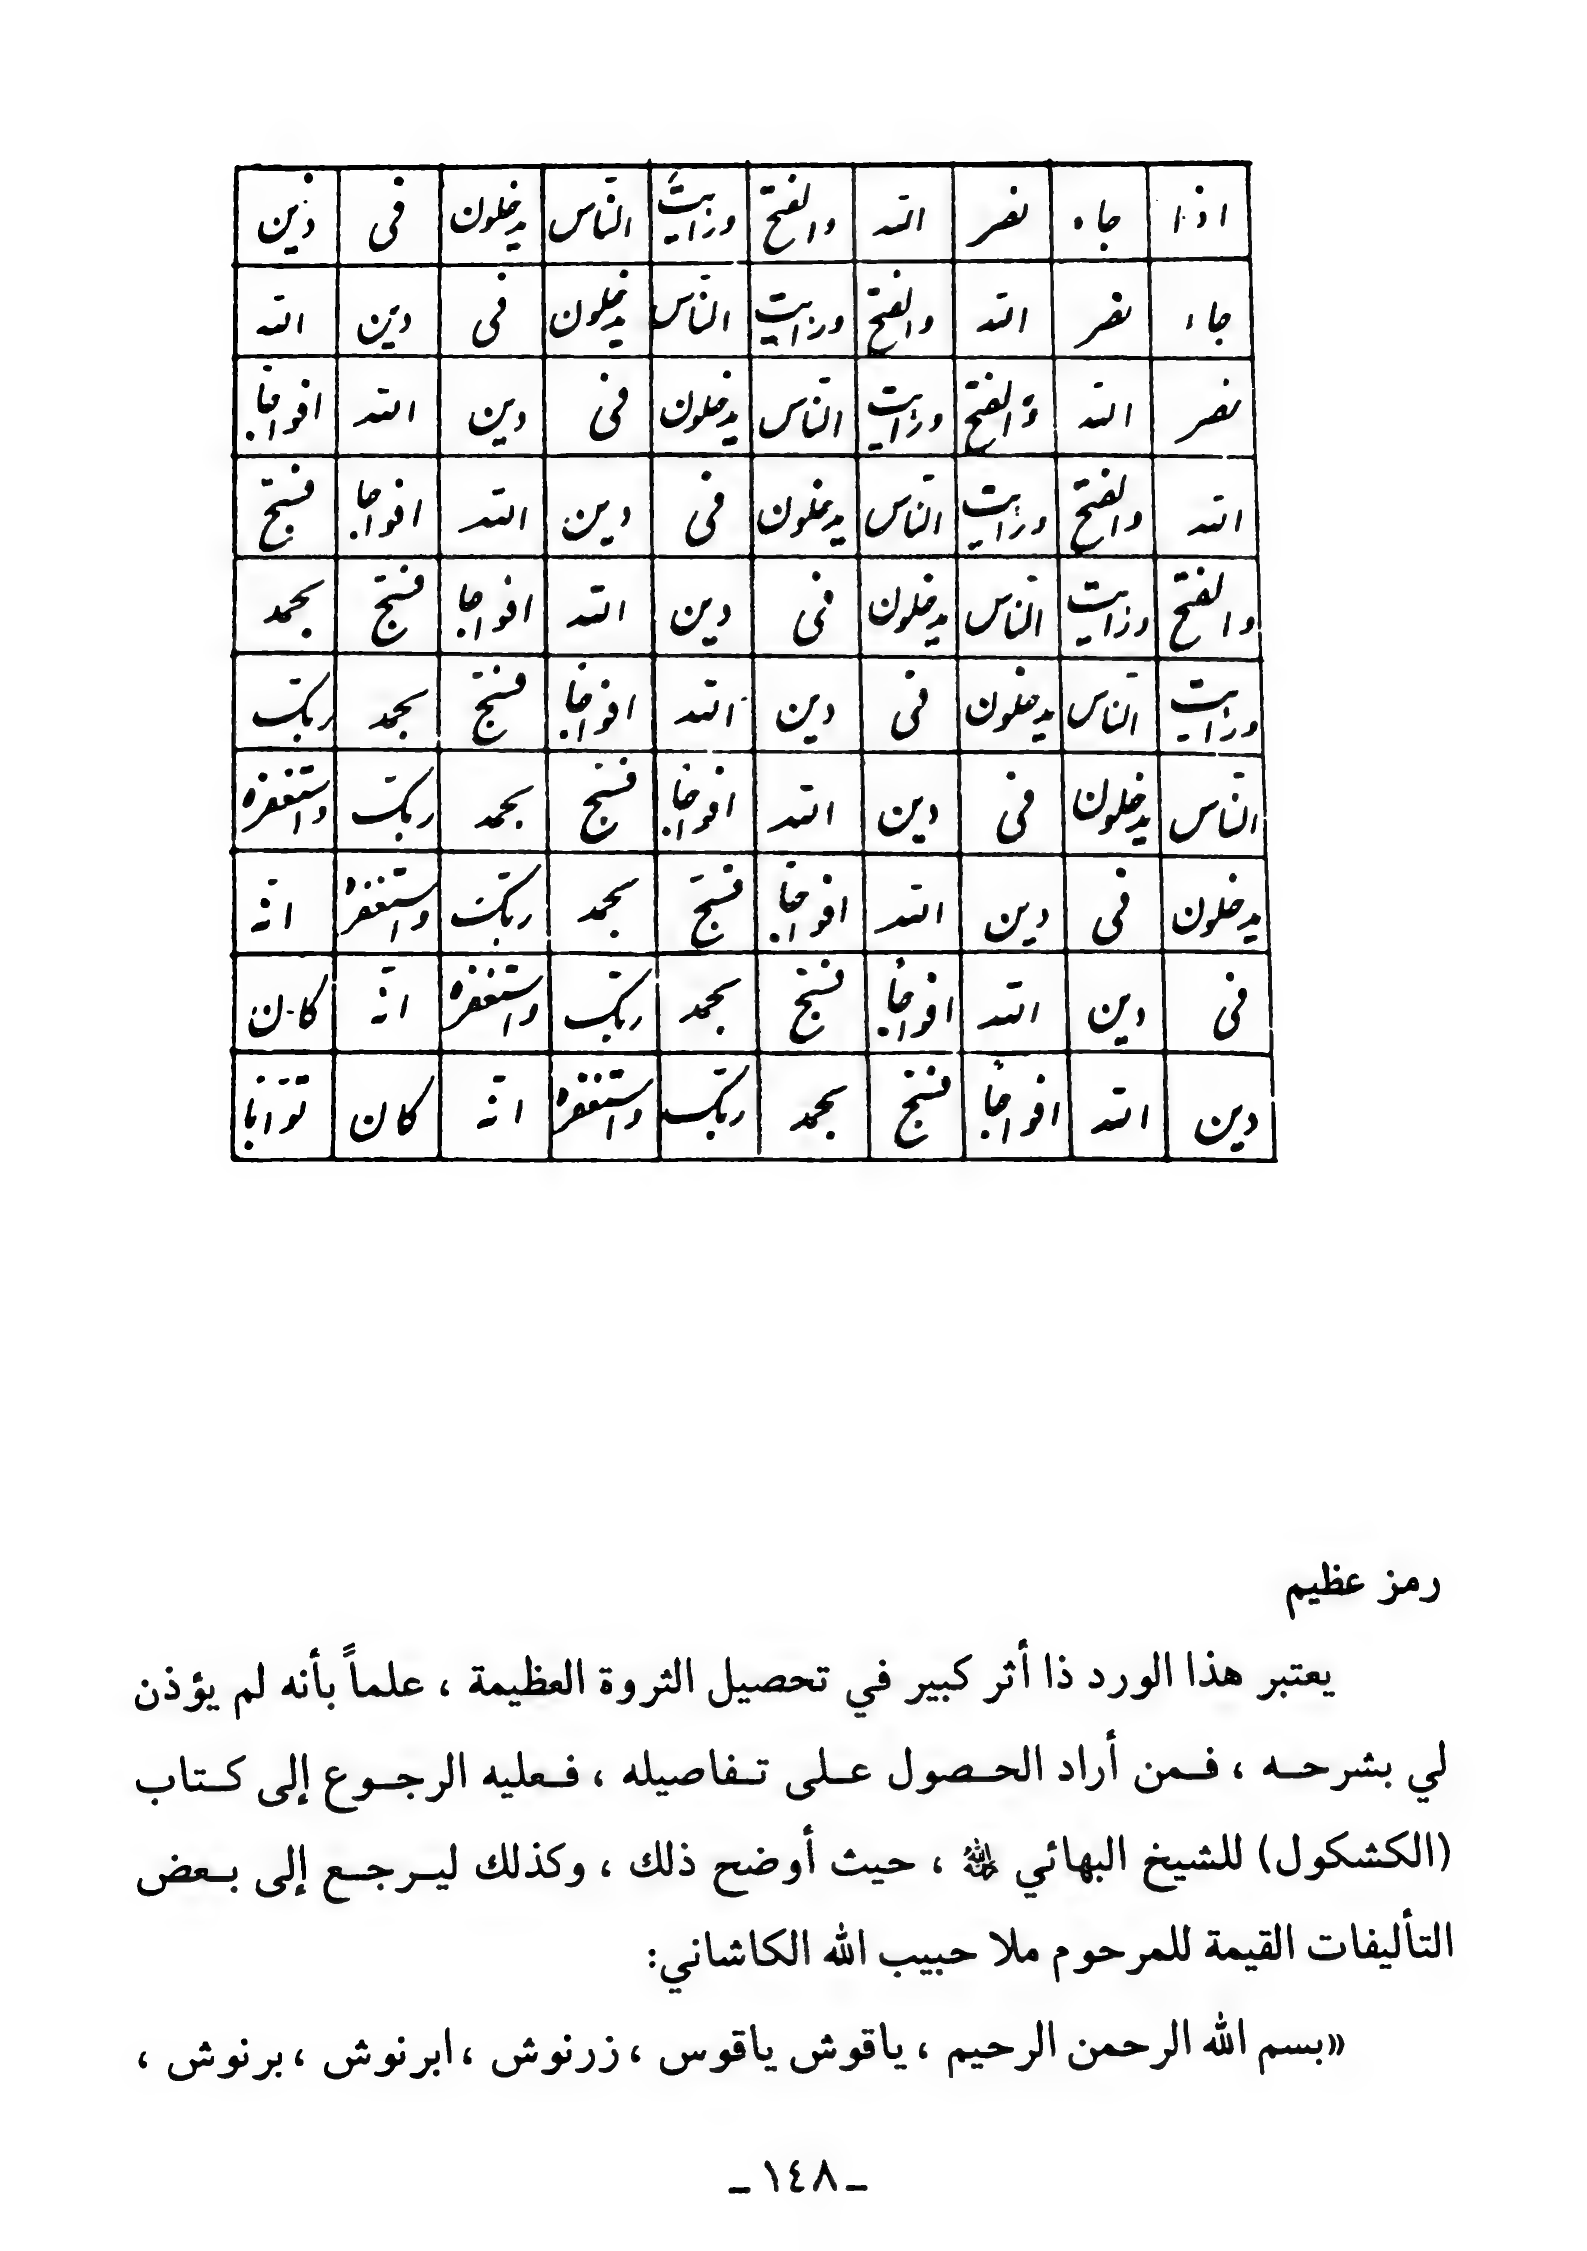 اذا جاء نصر الله والفتح ورايت الناس يدخلون فى دين
جاء نصر الله والفتح ورايت الناس يدخلون فى دين الله
نصر الله والفتح ورايت الناس يدخلون فى دين الله افواجا
الله والفتح ورايت الناس يدخلون فى دين الله افواجا فسبح
والفتح ورايت الناس يدخلون فى دين الله افواجا فسبح بحمد
ورايت الناس يدخلون فى دين الله افواجا فسبح بحمد ربك
الناس يدخلون فى دين الله افواجا فسبح بحمد ربك واستغفره
يدخلون فى دين الله افواجا فسبح بحمد ربك واستغفره انّه
فى دين الله افواجا فسبح بحمد ربك واستغفره انّه كان
دين الله افواجا فسبح بحمد ربك واستغفره انّه كان توابا
رمز عظيم
يعتبر هذا الورد ذا أثر كبير في تحصيل الثروة العظيمة ، علماً بأنه لم يؤذن
لي بشرحه ، فمن أراد الحصول على تفاصيله ، فعليه الرجوع إلى كتاب
(الكشكول) للشيخ البهائي ، حيث أوضح ذلك ، وكذلك ليرجع إلى بعض
التأليفات القيمة للمرحوم ملا حبيب الله الكاشاني:
«بسم الله الرحمن الرحيم ، ياقوش ياقوس ، زرنوش ، ابرنوش ، برنوش ،
ـ ١٤٨ ـ